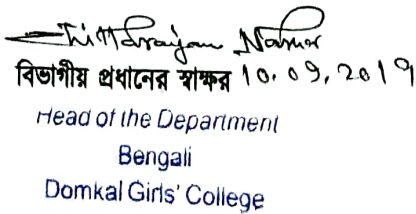 Chittaranjan Naskar
বিভাগীয় প্রধানের স্বাক্ষর 10.09.2019
Head of the Department
Bengali
Domkal Girls' College